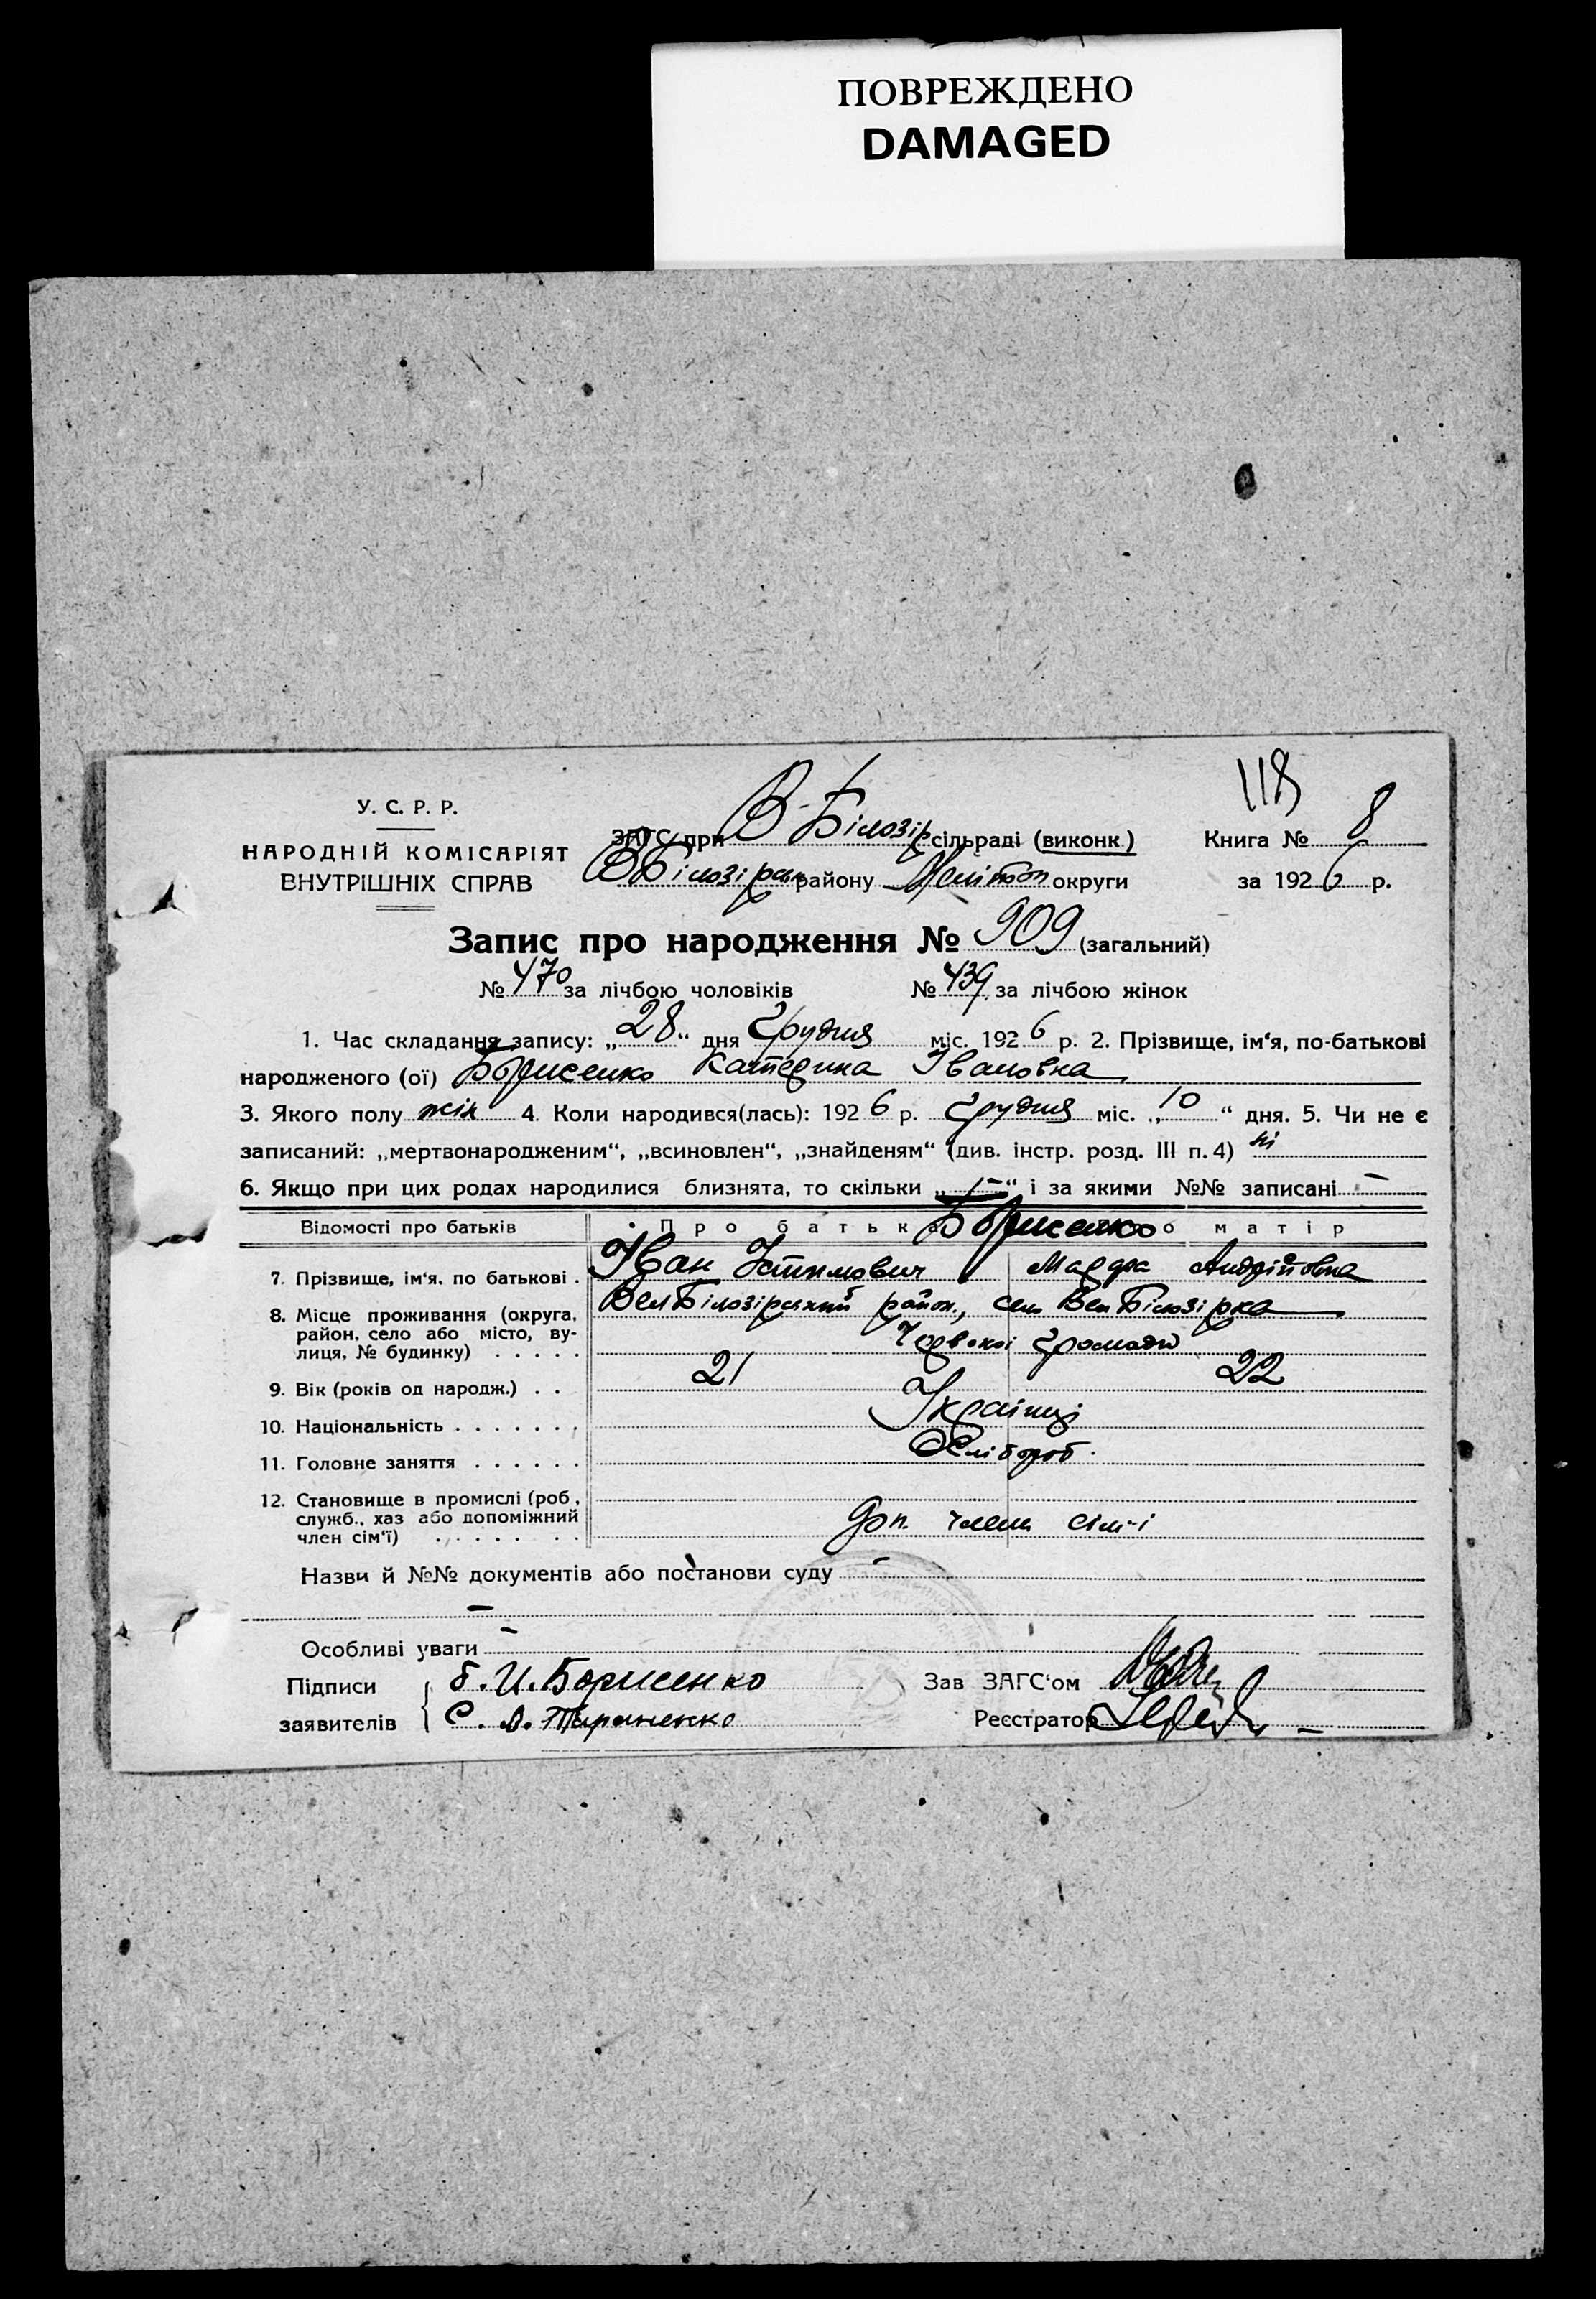 ПОВРЕЖДЕНО
DAMAGED
118
У. С. Р. Р.
НАРОДНІЙ КОМІСАРІЯТ
ВНУТРІШНІХ СПРАВ
ЗАГС при В-Білозір сільраді (виконк.)
В Білозірськ району Мелітоп округи
Книга № 8
за 1926 р.
Запис про народження № 909 (загальний)
№ 470 за лічбою чоловіків № 439 за лічбою жінок
1. Час складання запису: „28“ дня Грудня міс. 1926 р. 2. Прізвище, ім‘я, по-батькові
народженого (ої) Борисенко Катерина Івановна
3. Якого полу жін 4. Коли народився(лась): 1926 р. Грудня міс. „10“ дня. 5. Чи не є
записаний: „мертвонародженим“, „всиновлен“, „знайденям“ (див. інстр. розд. III п. 4) ні
6. Якщо при цих родах народилися близнята, то скільки „-“ і за якими №№ записані -
Відомості про батьків Про батька Про матір
Борисенко
7. Прізвище, ім‘я. по батькові . Іван Устимович Мавра Андрійовна
8. Місце проживання (округа, район, село або місто, вулиця, № будинку) . . . . . Вел Білозірський район., село Вел Білозірка
Червоної громади
9. Вік (років од народж.) . . 21 22
10. Національність . . . . . . . Українці
11. Головне заняття . . . . . . Хлібороб.
12. Становище в промислі (роб., служб., хаз або допоміжний член сім‘ї) . . . . . . . Доп. члени сім-ї
Назви й №№ документів або постанови суду -
-
Особливі уваги -
Підписи заявителів { Б. И. Борисенко
С. А.
Зав ЗАГС‘ом
Реєстратор